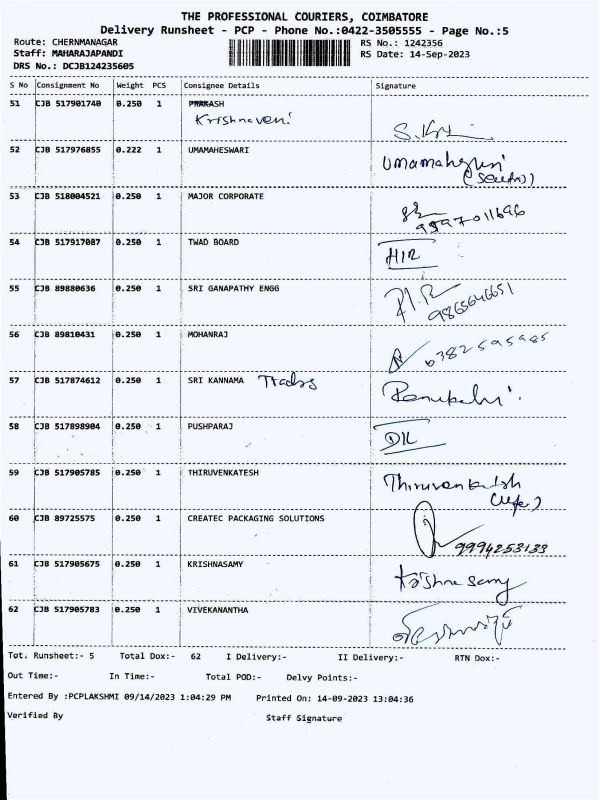 THE PROFESSIONAL COURIERS, COIMBATORE
Delivery Runsheet - PCP - Phone No.:0422-3505555 - Page No.:5
Route: CHERNMANAGAR RS No.: 1242356
Staff: MAHARAJAPANDI RS Date: 14-Sep-2023
DRS No.: DCJB124235605
S No Consignment No Weight PCS Consignee Details Signature
51 CJB 517901740 0.250 1 PRAKASH
Krishnaveni
52 CJB 517976855 0.222 1 UMAMAHESWARI Umamaheswari
53 CJB 518004521 0.250 1 MAJOR CORPORATE
54 CJB 517917087 0.250 1 TWAD BOARD
55 CJB 89880636 0.250 1 SRI GANAPATHY ENGG
9865646651
56 CJB 89810431 0.250 1 MOHANRAJ
57 CJB 517874612 0.250 1 SRI KANNAMA
58 CJB 517898904 0.250 1 PUSHPARAJ
59 CJB 517905785 0.250 1 THIRUVENKATESH Thiruvenkatesh
(wife)
60 CJB 89725575 0.250 1 CREATEC PACKAGING SOLUTIONS
9994253133
61 CJB 517905675 0.250 1 KRISHNASAMY Krishnasamy
62 CJB 517905783 0.250 1 VIVEKANANTHA
Tot. Runsheet:- 5 Total Dox:- 62 I Delivery:- II Delivery:- RTN Dox:-
Out Time:- In Time:- Total POD:- Delvy Points:-
Entered By :PCPLAKSHMI 09/14/2023 1:04:29 PM Printed On: 14-09-2023 13:04:36
Verified By Staff Signature